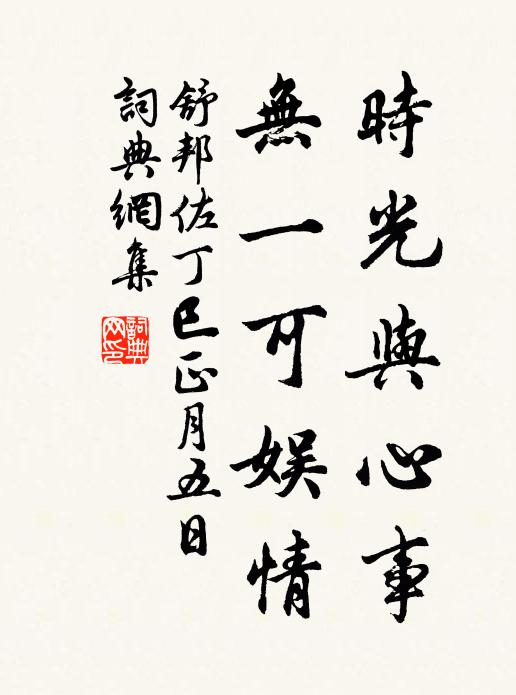 時光與心事
無一可娱情
舒邦佐丁巳正月五日
詞典網集
詞典网印